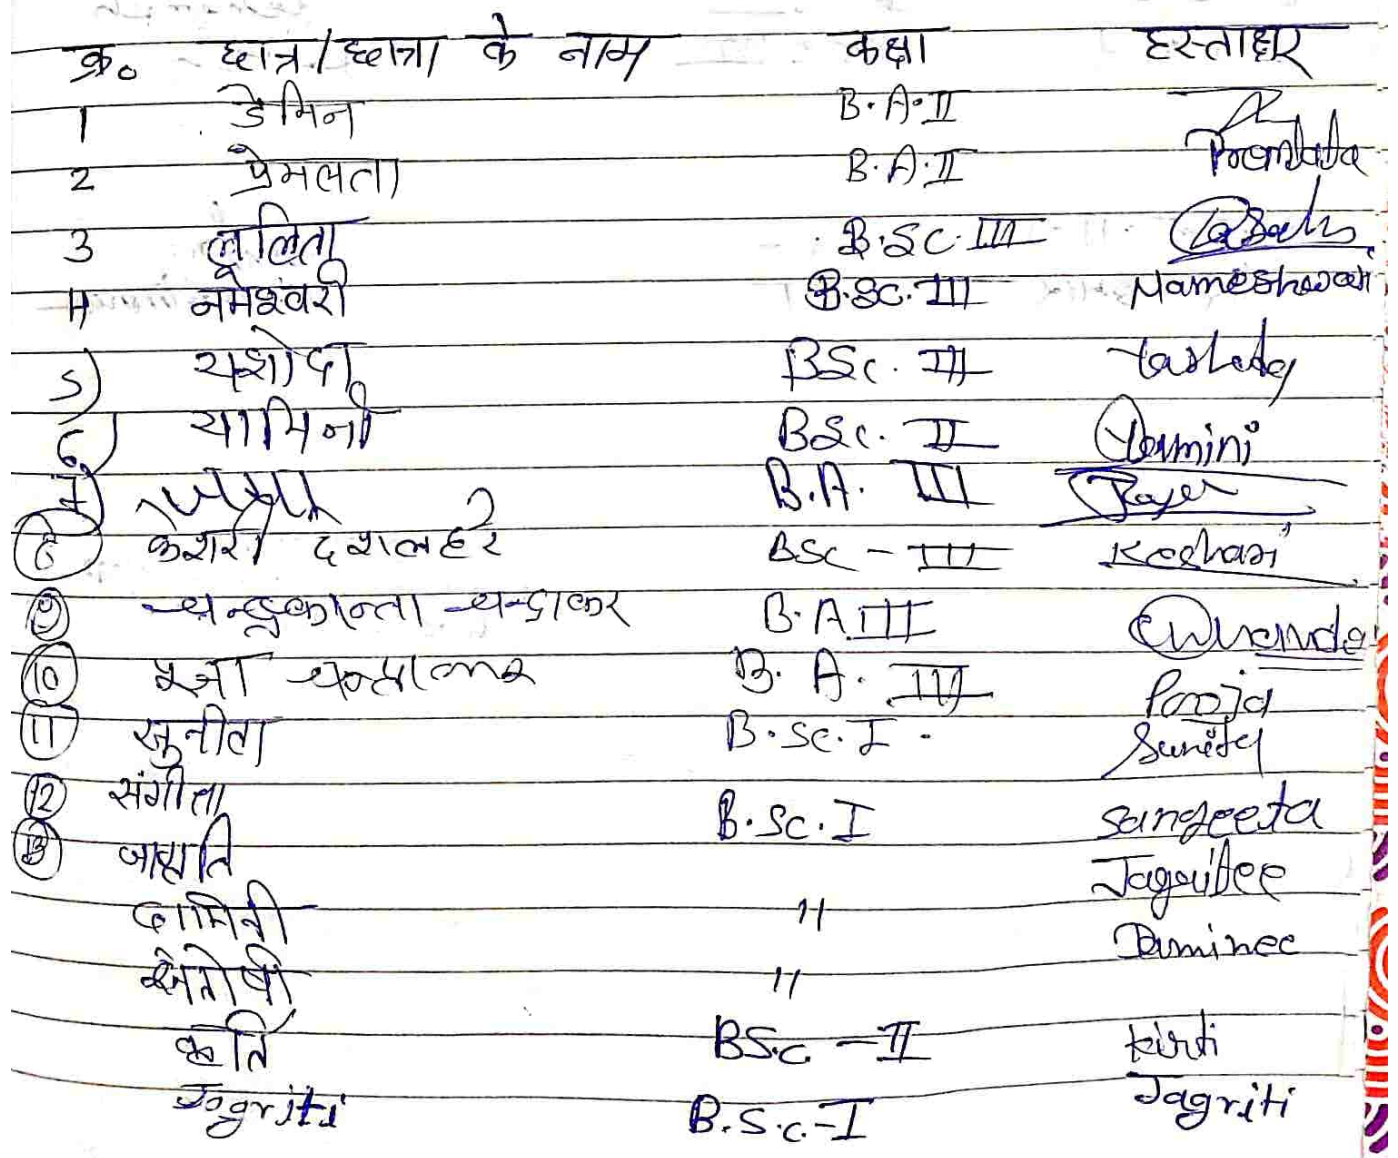 क्र. छात्र/छात्रा के नाम कक्षा हस्ताक्षर
1 डेमिन B.A.II
2 प्रेमलता B.A.II Premlata
3 ललिता B.SC.III
4 नमेश्वरी B.Sc.III Nameshwari
5) यशोदा BSc. III Yashoda
6) यामिनी BSc. II Yamini
7) B.A. III
8 केशरी देशलहरे BSC - III Keshari
9 चन्द्रकान्ता चन्द्राकर B.A III
10 B. A. III Pooja
11 सुनीता B.Sc.I. Sunita
12 संगीता B.Sc.I sangeeta
13 जागृति Jagritee
दामिनी " Daminee
संतोषी "
कीर्ति BSc - II kirti
Jagriti B.S.c.-I Jagriti